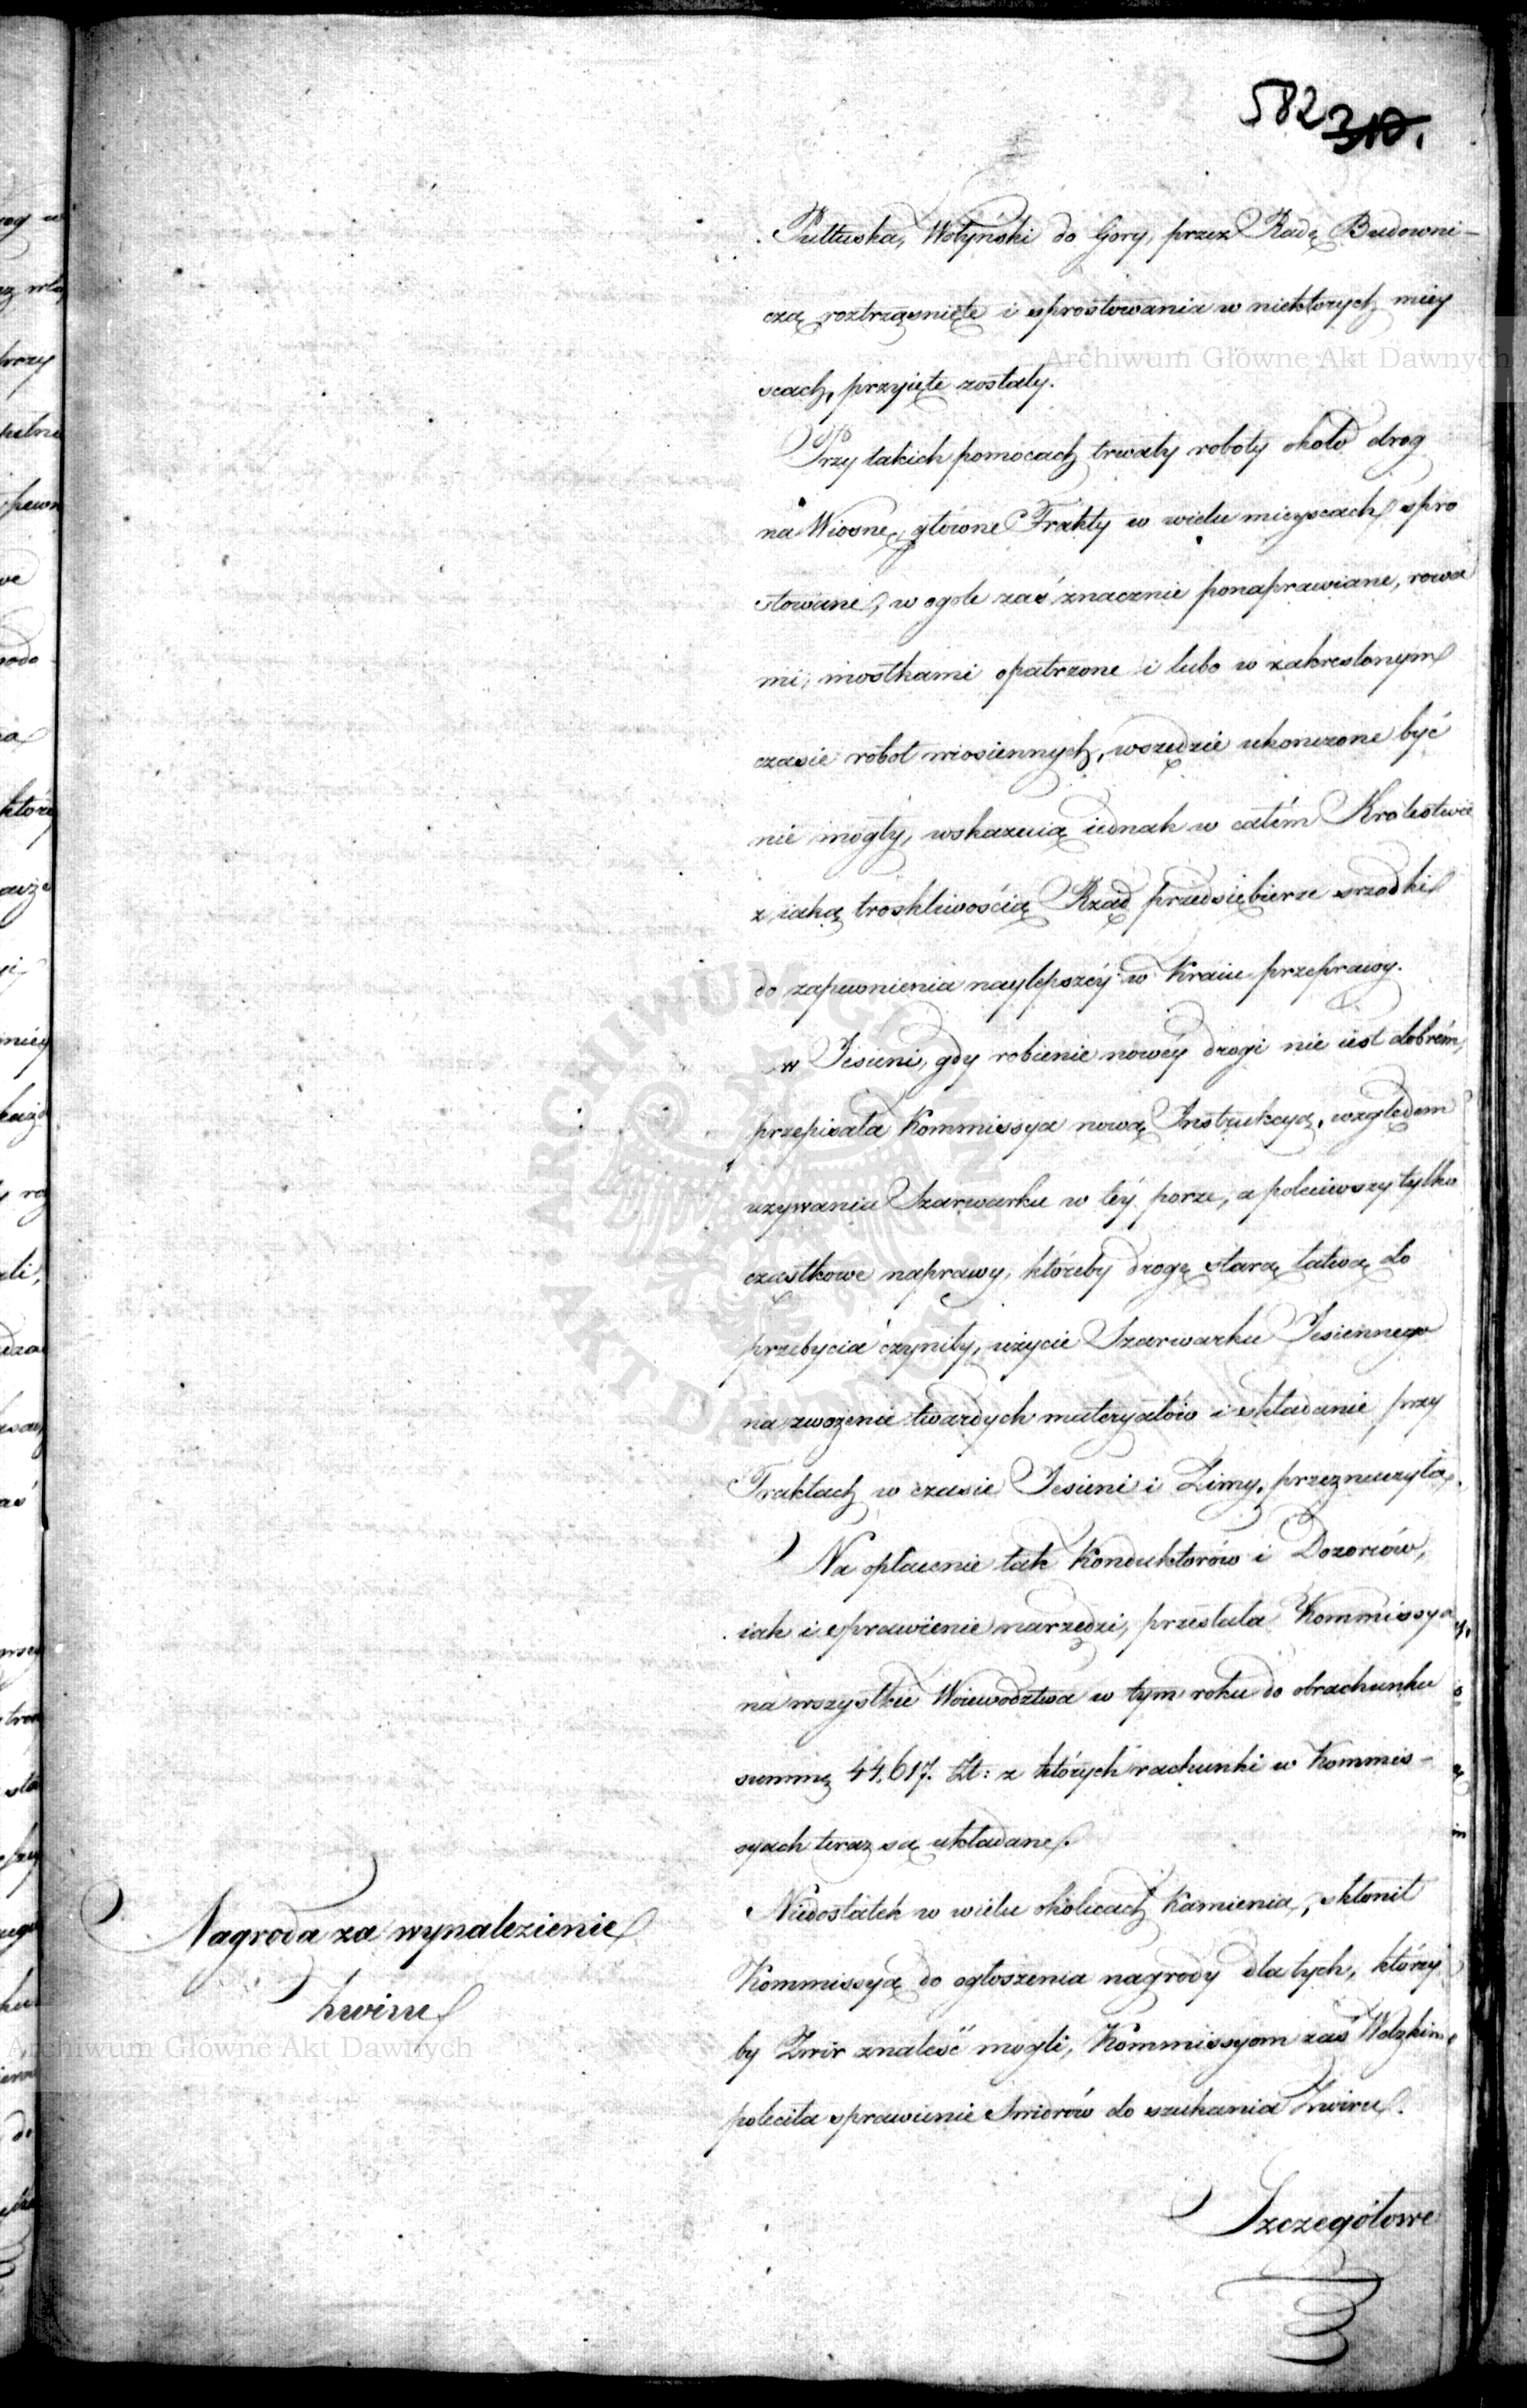 582 310.
Pułtuska, Wołyński do Gory, przez Radę Budowni-
czą roztrząsnięte i sprostowania w niektorych miey
scach, przyięte zostały.
Przy takich pomocach trwały roboty około drog
na Wiosnę, główne Trakty w wielu mieyscach spro
stowane, w ogole zaś znacznie ponaprawiane, rowa
mi, mostkami opatrzone i lubo w zakreslonym
czasie robot wiosiennych, wszędzie ukonczone być
nie mogły, wskazuią iednak w całém Krolestwie
z iaką troskliwością Rząd przedsiębierze srzodki
do zapewnienia naylepszéy w Kraiu przeprawy.
w Jesieni, gdy robienie nowéy drogi nie iest dobrém,
przepisała Kommissya nową Instrukcyą, względem
uzywania Szarwarku w téy porze, a poleciwszy tylko
cząstkowe naprawy, któreby drogę starą łatwą do
przebycia czyniły, użycie Szarwarku Jesiennego
na zwożenie twardych materyałów i składanie przy
Traktach w czasie Jesieni i Zimy, przeznaczyła.
Na opłacenie tak Konduktorów i Dozorców,
iak i sprawienie narzędzi, przesłała Kommissya
na wszystkie Woiewodztwa w tym roku do obrachunku
summę 44,617. Zł: z których rachunki w Kommis-
syach teraz są układane.
Nagroda za wynalezienie
żwiru
Niedostatek w wielu okolicach Kamienia, skłonił
Kommissyą do ogłoszenia nagrody dla tych, którzy
by Zwir znaleść mogli, Kommissyom zaś Wdzkim
poleciła sprawienie Swidrów do szukania Zwiru.
Szczegółowe
Archiwum Główne Akt Dawnych
Archiwum Główne Akt Dawnych
ARCHIWUM GŁÓWNE AKT DAWNYCH